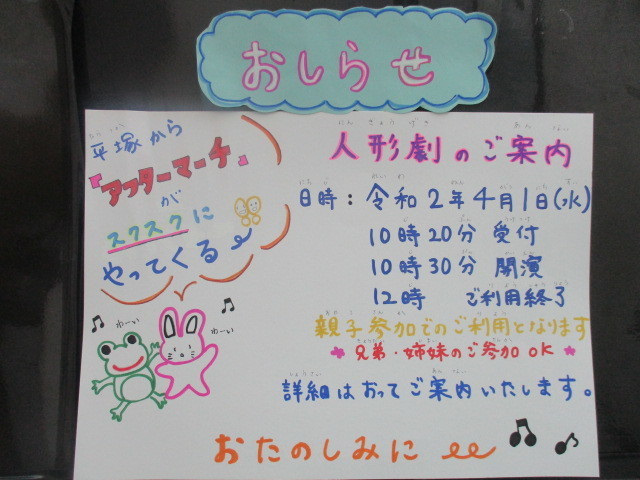 おしらせ
平塚から
『アフターマーチ』
が
スクスクに
やってくる
わーい
わーい
人形劇のご案内
日時：令和2年4月1日(水)
10時20分 受付
10時30分 開演
12時 ご利用終了
親子参加でのご利用となります
兄弟・姉妹のご参加OK
詳細はおってご案内いたします。
おたのしみに